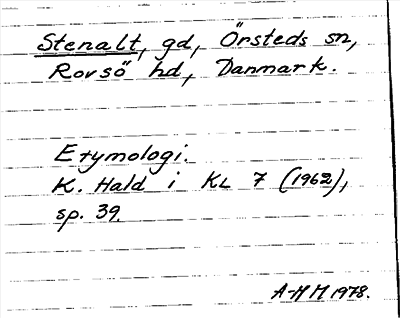 Stenalt, gd, Örsteds sn,
Rovsö hd, Danmark.
Etymologi.
K. Hald i KL 7 (1962),
sp. 39.
A-H M 1978.